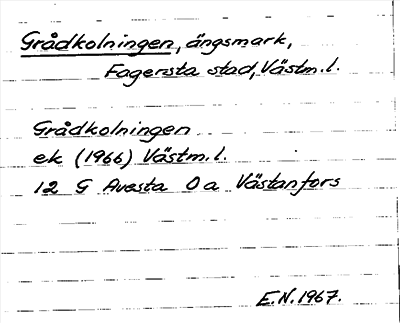 Grådkolningen, ängsmark,
Fagersta stad, Västm.l.
Grådkolningen
ek (1966) Västm.l.
12 G Avesta 0 a Västanfors
E.N. 1967.